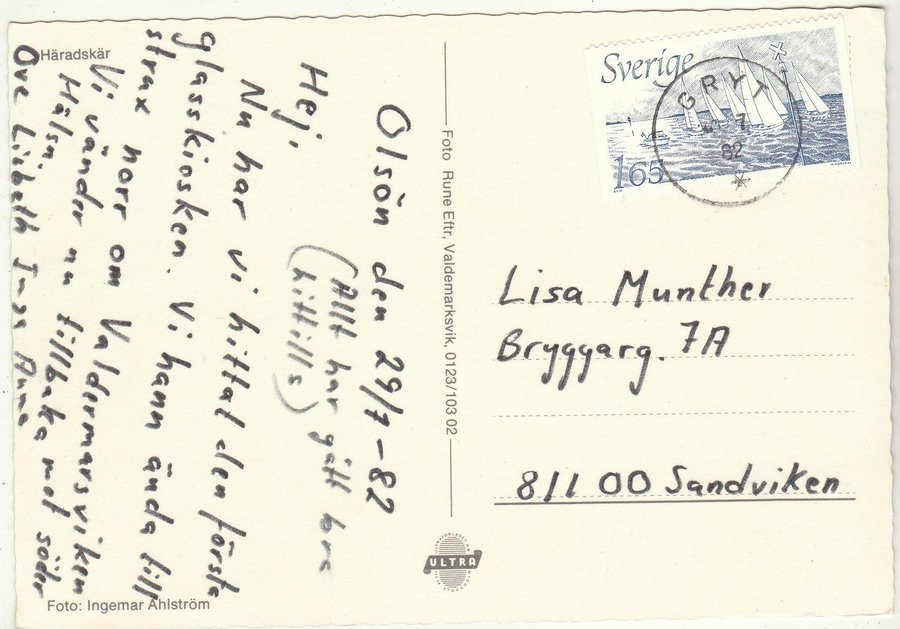 Häradskär
Olsön den 29/7-82
Hej,
(Allt har gått bra
hittills)
Nu har vi hittat den första
glasskiosken. Vi hann ända till
strax norr om Valdermarsviken
Vi vänder nu tillbaka mot söder
Hälsn.
Ove Lisbeth Inga Anna
Foto: Ingemar Ahlström
Foto Rune Eftr, Valdemarksvik, 0123/103 02
ULTRA
Sverige
165
GRYT
7
82
Lisa Munther
Bryggarg. 7A
811 00 Sandviken